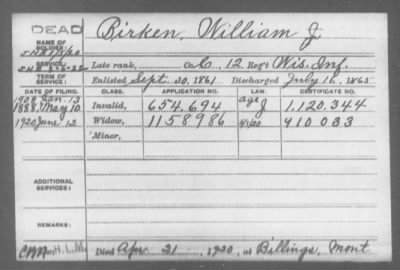 DEAD
NAME OF SOLDIER:
Birken, William J.
SERVICE:
Late rank, Co. C, 12 Reg't Wis. Inf.
TERM OF SERVICE:
Enlisted Sept. 30, 1861 Discharged July 16, 1865
DATE OF FILING. CLASS. APPLICATION NO. LAW. CERTIFICATE NO.
1908 Jan. 13
1888, May 10 Invalid, 654.694 1.120.344
1920 June 12 Widow, 1158986 910 033
Minor,
ADDITIONAL SERVICES:
REMARKS:
H.L.M. Died Apr 21, 1920, at Billings, Mont